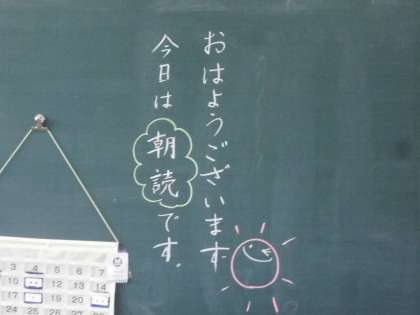 おはようございます
今日は朝読です。
3 4 5 6 7
10 12 13 14
17 19 20
24 25 26 27